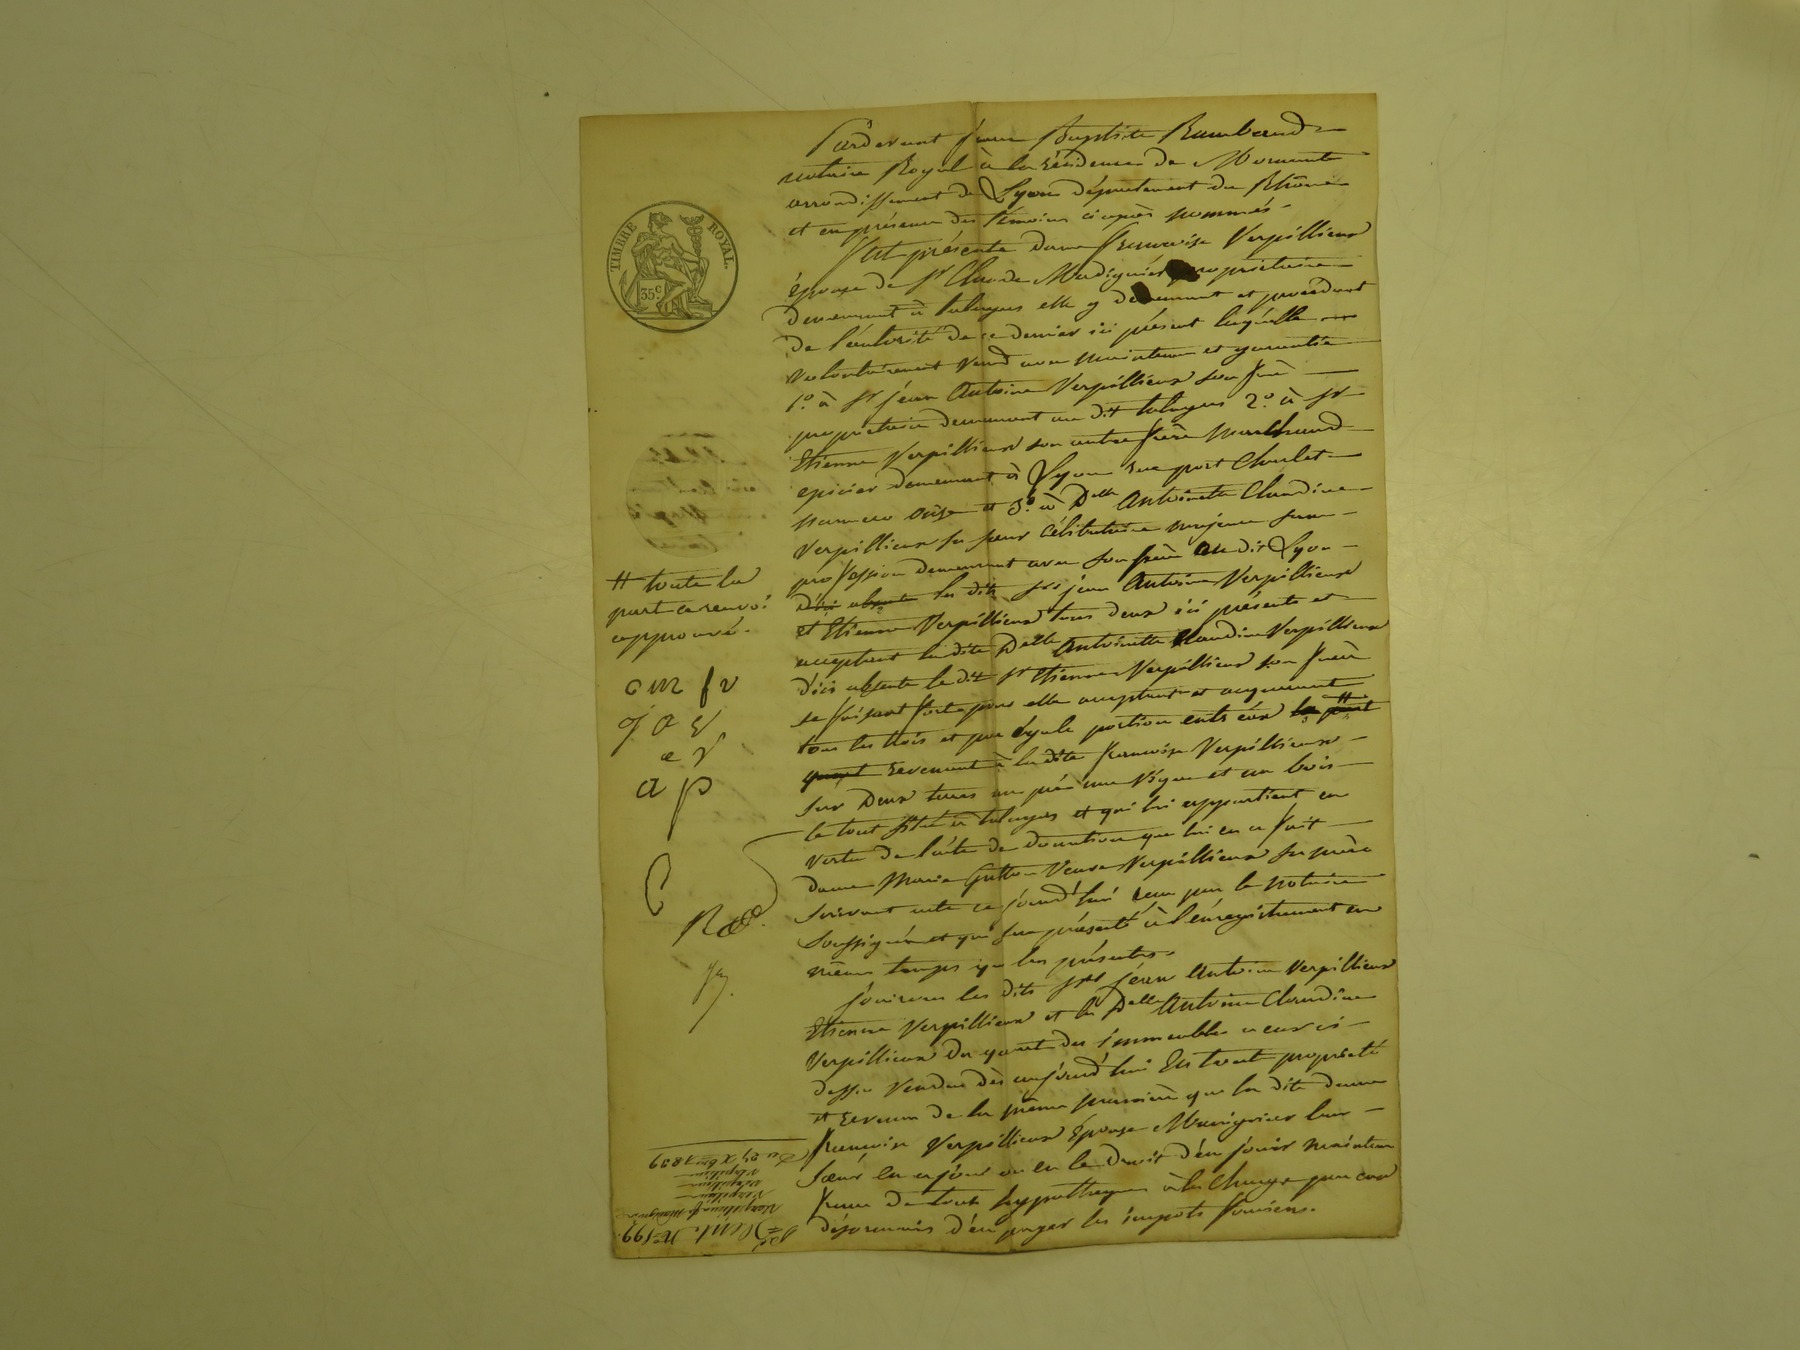 Pardevant Jean Baptiste Rambaud
notaire Royal à la résidence de Mornant
arrondissement de Lyon département du Rhône
et en présence des témoins ci après nommés
Fut présente dame Francoise Verpillieux
épouse de Sr Claude Madignier propriétaire
demeurant à taluyers elle y demeurant et procédant
de l'autorité de ce dernier ici présent laquelle
volontairement vend avec maintenue et garantie
1.º à Sr jean Antoine Verpillieux son frère
propriétaire demeurant au dit taluyers 2.º à Sr
Etienne Verpillieux son autre frère marchand
epicier demeurant à Lyon rue port Charlet
numero onze et 3.º à Delle Antoinette Claudine
Verpillieux sa sœur célibataire majeure sans
profession demeurant avec son frère au dit Lyon
d'ici absente les dits Srs jean Antoine Verpillieux
et Etienne Verpillieux tous deux ici présents et
acceptant la dite Delle Antoinette Claudine Verpillieux
d'ici absente le dit Sr Etienne Verpillieux son frère
se faisant fort pour elle acceptant et acquerant
tous les trois et par égale portion entr'eux la part
quant revenant à la dite Francoise Verpillieux
sur Deux terres un pré une Vigne et un bois
le tout situé à taluyers et qui lui appartient en
vertu de l'acte de donation que lui en a fait
dame Marie Gutton Veuve Verpillieux sa mère
suivant acte ce jourd'hui reçu par le notaire
soussigné et qui sera présenté à l'enregistrement en
même temps que les présentes.
Jouiront les dits Srs jean Antoine Verpillieux
Etienne Verpillieux et la Delle Antoine Claudine
Verpillieux du quart des immeubles a eux ci
dessus vendus dès aujourd'hui En toute propriété
et revenu de la même manière que la dite dame
Francoise Verpillieux épouse Madignier leur
sœur en a joui ou eu le Droit d'en jouir maintenu
franc de toute hypothèque à la charge par eux
désormais d'en payer les impots fonciers.
TIMBRE ROYAL.
35c.
# toute la
part ce renvoi
approuvé.
c m f v
j a v
e v
a p
C
R
Du 24 Xbre 1839
Verpillieux
Verpillieux
Verpillieux
Verpillieux fe Madignier
Vent. No 199